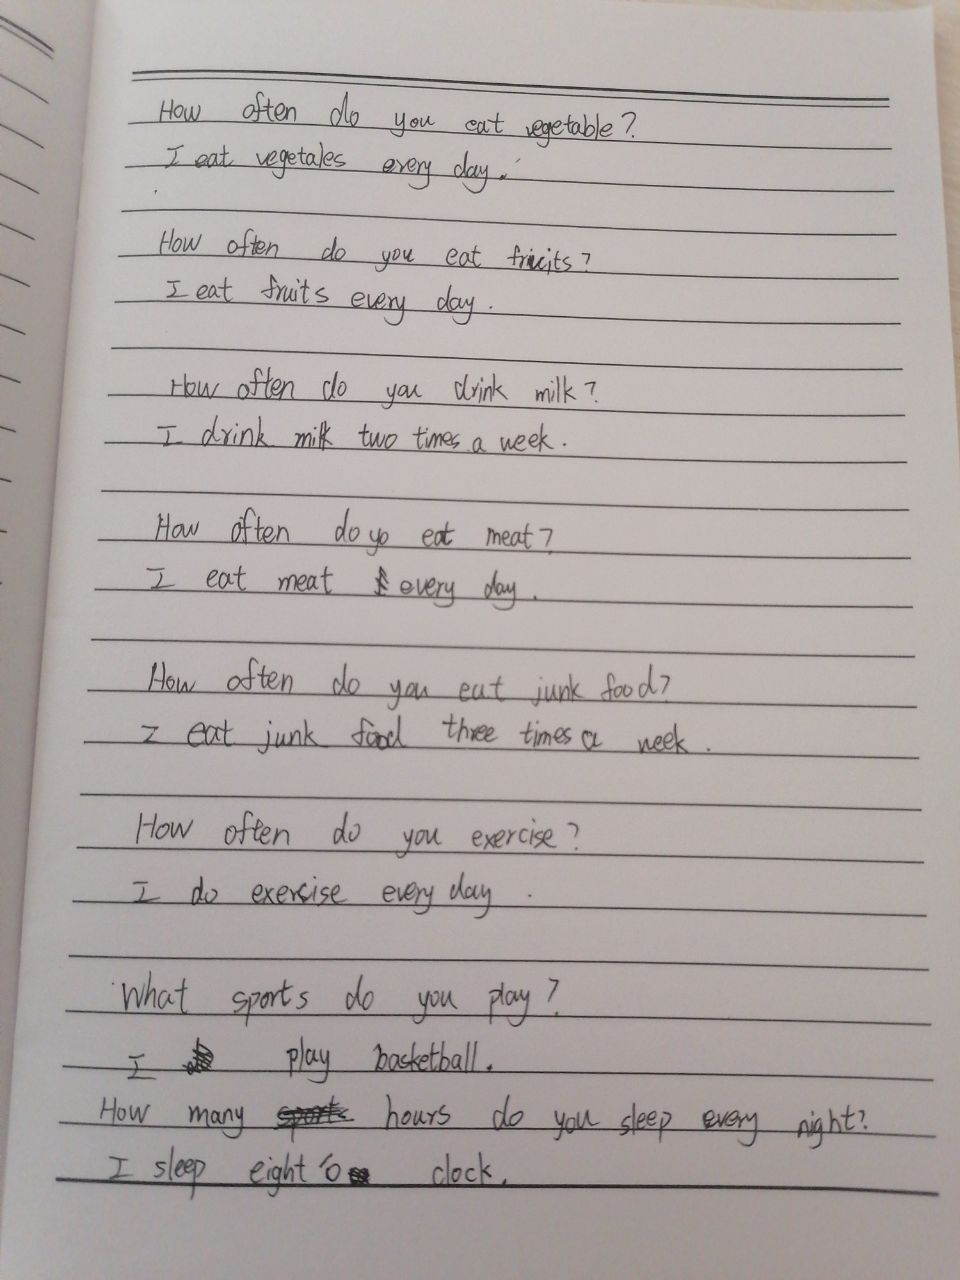 How often do you eat vegetable?
I eat vegetales every day.
How often do you eat fruits?
I eat fruits every day.
How often do you drink milk?
I drink milk two times a week.
How often do yo eat meat?
I eat meat every day.
How often do you eat junk food?
I eat junk food three times a week.
How often do you exercise?
I do exercise every day.
What sports do you play?
I play basketball.
How many hours do you sleep every night?
I sleep eight o clock.